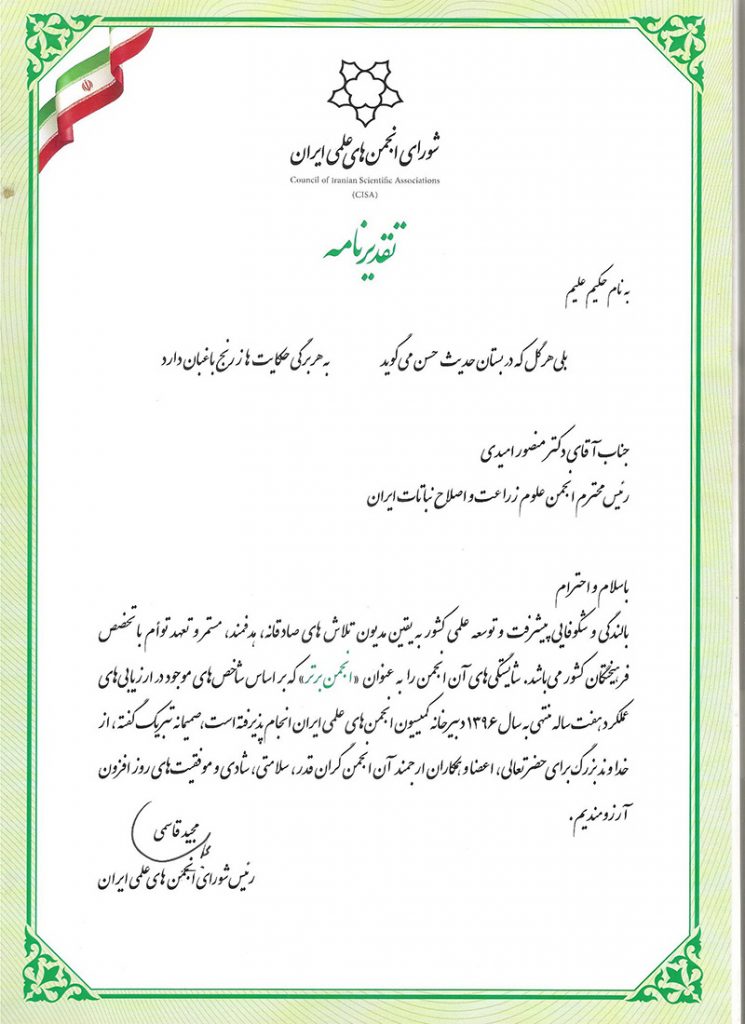 شورای انجمن های علمی ایران
Council of Iranian Scientific Associations
(CISA)
تقدیرنامه
به نام حکیم علیم
بلی هر گل که در بستان حدیث حسن می گوید به هر برگی حکایت ها ز رنج باغبان دارد
جناب آقای دکتر منصور امیدی
رئیس محترم انجمن علوم زراعت و اصلاح نباتات ایران
باسلام و احترام
بالندگی و شکوفایی پیشرفت و توسعه علمی کشور به یقین مدیون تلاش های صادقانه، هدفمند، مستمر و تعهد توأم با تخصص
فرهیختگان کشور می باشد. شایستگی های آن انجمن را به عنوان «انجمن برتر» که بر اساس شاخص های موجود در ارزیابی های
عملکرد هفت ساله منتهی به سال ۱۳۹۶ دبیرخانه کمیسیون انجمن های علمی ایران انجام پذیرفته است، صمیمانه تبریک گفته، از
خداوند بزرگ برای حضرتعالی، اعضا و همکاران ارجمند آن انجمن گران قدر، سلامتی، شادی و موفقیت های روز افزون
آرزومندیم.
مجید قاسمی
رئیس شورای انجمن های علمی ایران